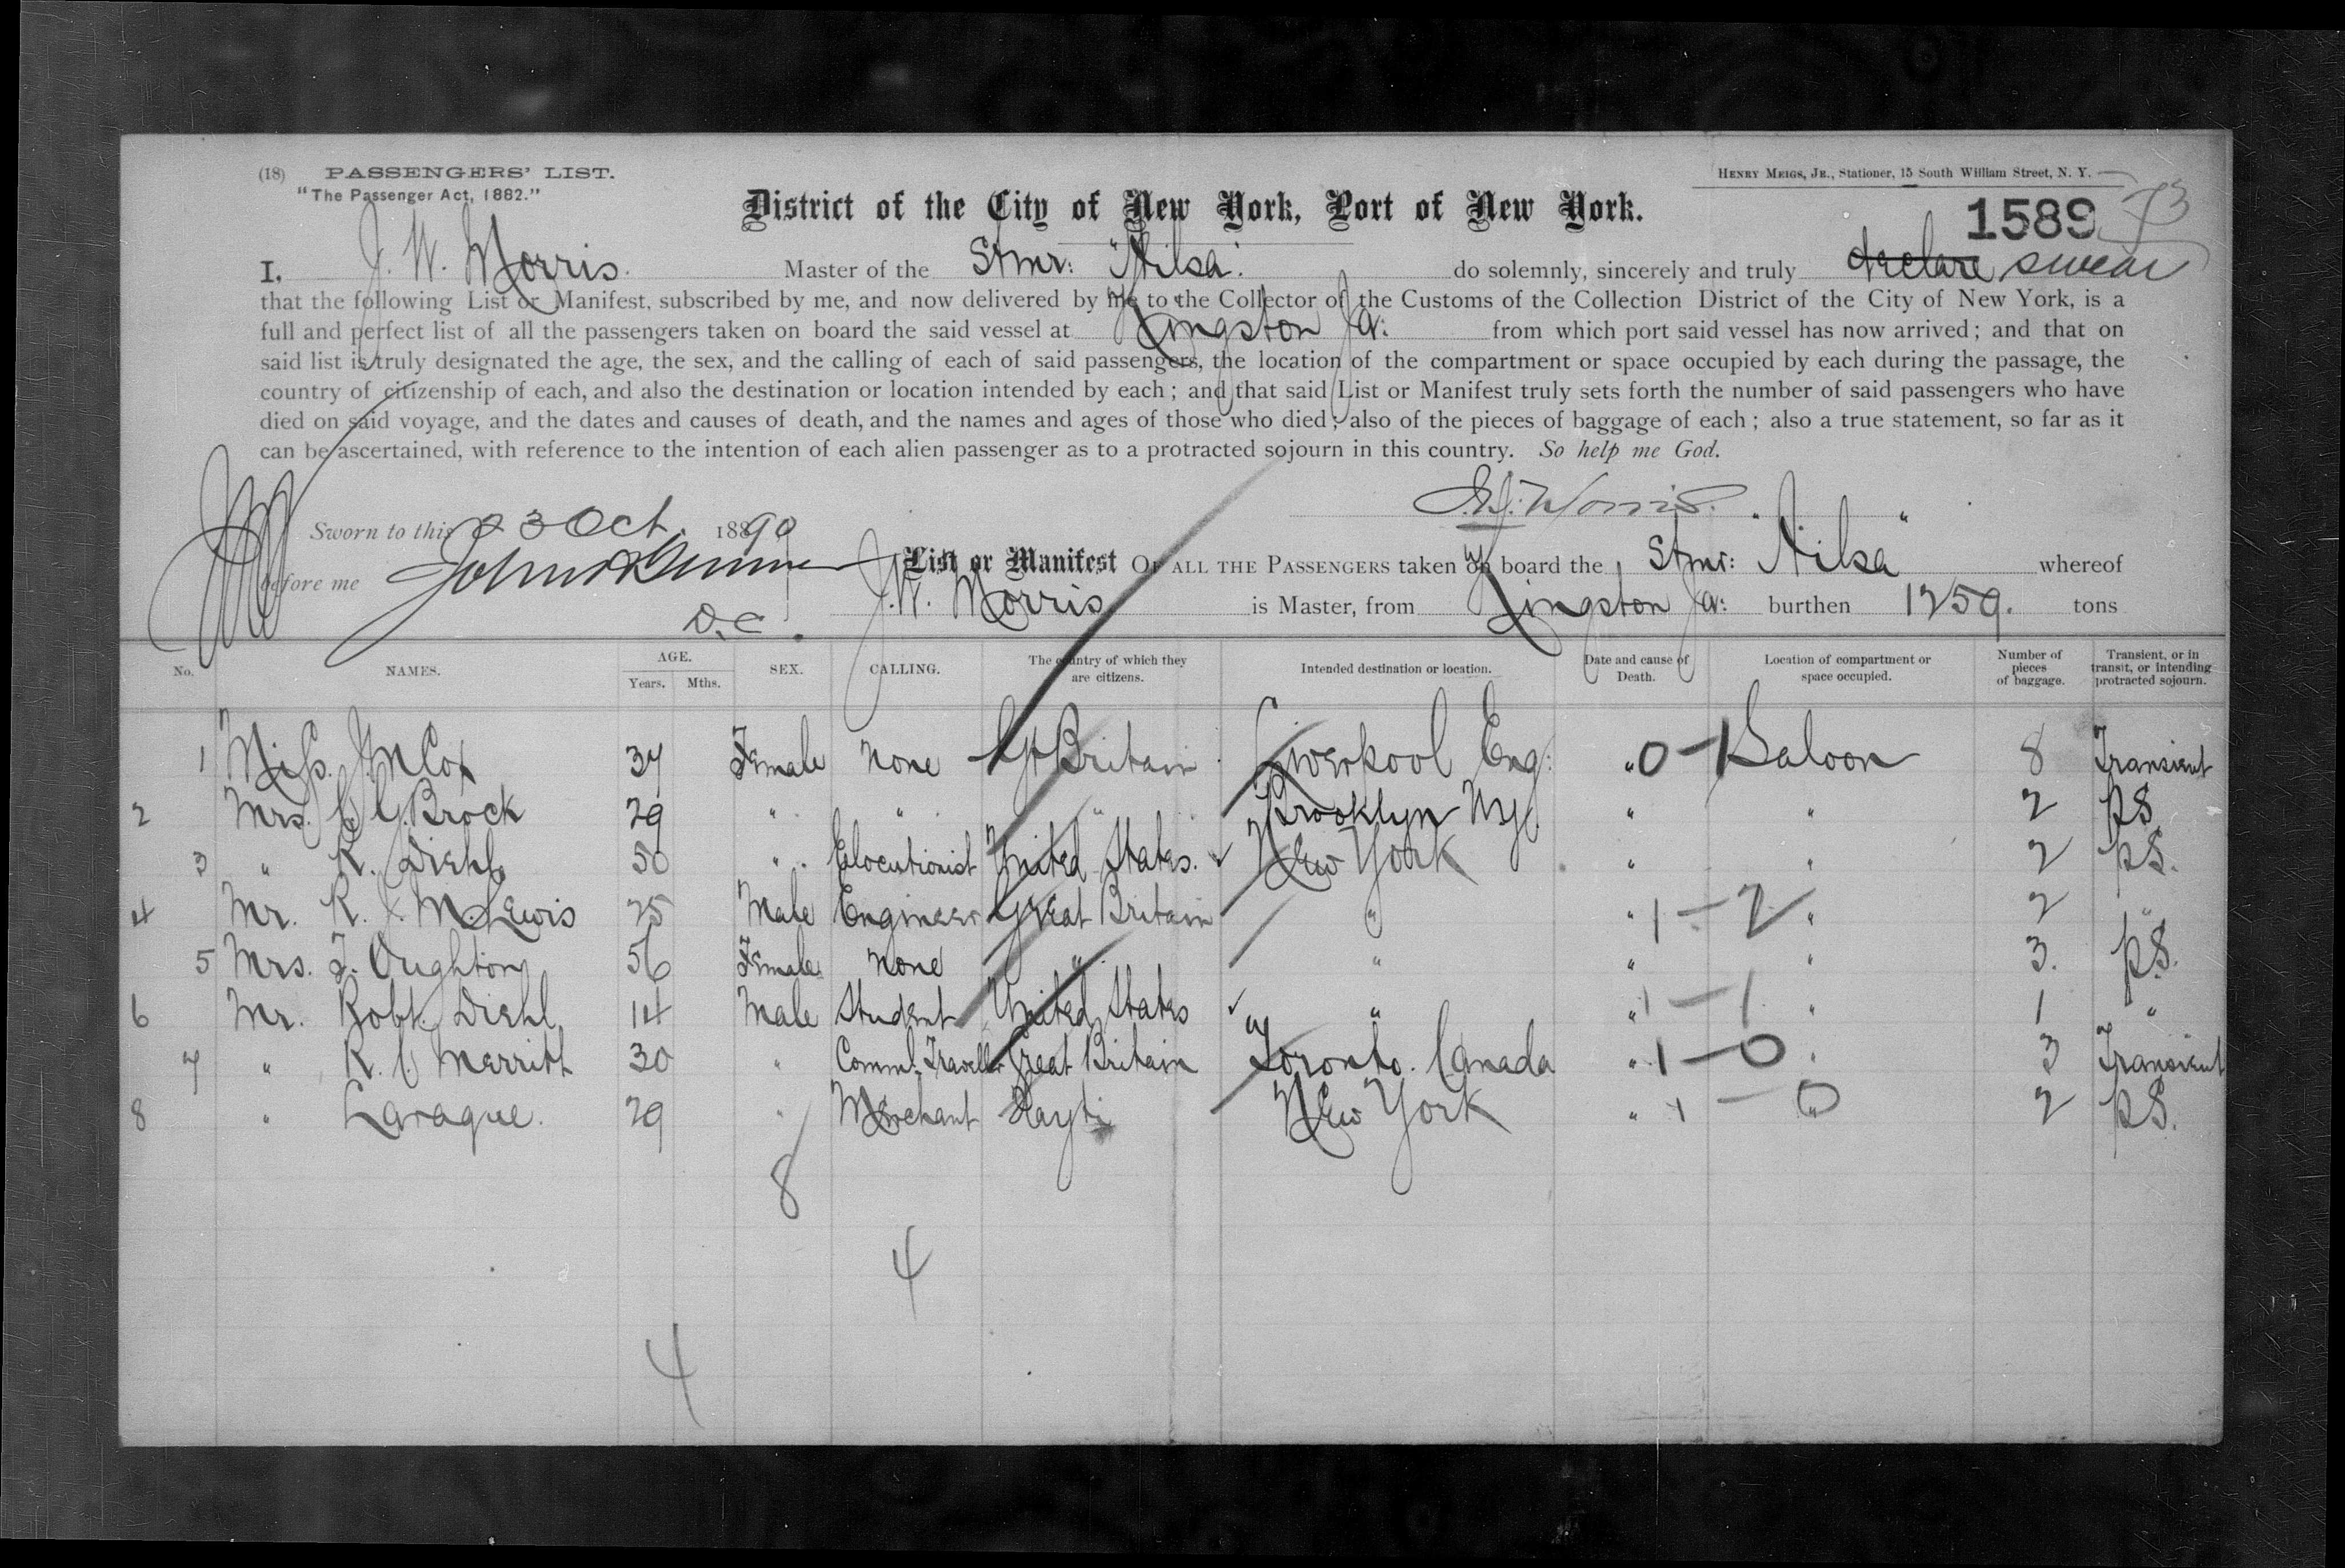 (18) PASSENGERS' LIST.
"The Passenger Act, 1882."
HENRY MEIGS, JR., Stationer, 15 South William Street, N. Y.
District of the City of New York, Port of New York.
1589 73
I, J. W. Morris Master of the Stmr: "Ailsa" do solemnly, sincerely and truly declare swear
that the following List or Manifest, subscribed by me, and now delivered by me to the Collector of the Customs of the Collection District of the City of New York, is a
full and perfect list of all the passengers taken on board the said vessel at Kingston Ja: from which port said vessel has now arrived; and that on
said list is truly designated the age, the sex, and the calling of each of said passengers, the location of the compartment or space occupied by each during the passage, the
country of citizenship of each, and also the destination or location intended by each; and that said List or Manifest truly sets forth the number of said passengers who have
died on said voyage, and the dates and causes of death, and the names and ages of those who died; also of the pieces of baggage of each; also a true statement, so far as it
can be ascertained, with reference to the intention of each alien passenger as to a protracted sojourn in this country. So help me God.
J.W. Morris.
Sworn to this 23 Oct. 1890
before me
D.C.
List or Manifest OF ALL THE PASSENGERS taken on board the Stmr: "Ailsa" whereof
J.W. Morris is Master, from Kingston Ja: burthen 1259. tons
No. NAMES. AGE. Years. Mths. SEX. CALLING. The country of which they are citizens. Intended destination or location. Date and cause of Death. Location of compartment or space occupied. Number of pieces of baggage. Transient, or in transit, or intending protracted sojourn.
1 Miss. J M Cox 37 Female None Gt Britain Liverpool Eng: " 0-1 Saloon 8 Transient
2 Mrs. C G. Brock 29 " " " Brooklyn NY. " " 2 P.S.
3 " R. Diehl 50 " Elocutionist United States. New York " " 2 P.S.
4 Mr. R. J. M. Lewis 25 Male Engineer Great Britain " " 1-2 " 2 "
5 Mrs. F. Oughton 56 Female None " " " " 3. P.S.
6 Mr. Robt. Diehl 14 Male Student United States " " 1-1 " 1 "
7 " R. C. Merritt 30 " Comml. Traveller Great Britain Toronto. Canada " 1-0 " 3 Transient
8 " Laraque. 29 " Merchant Hayti New York " 1-0 " 2 P.S.
8
4
4